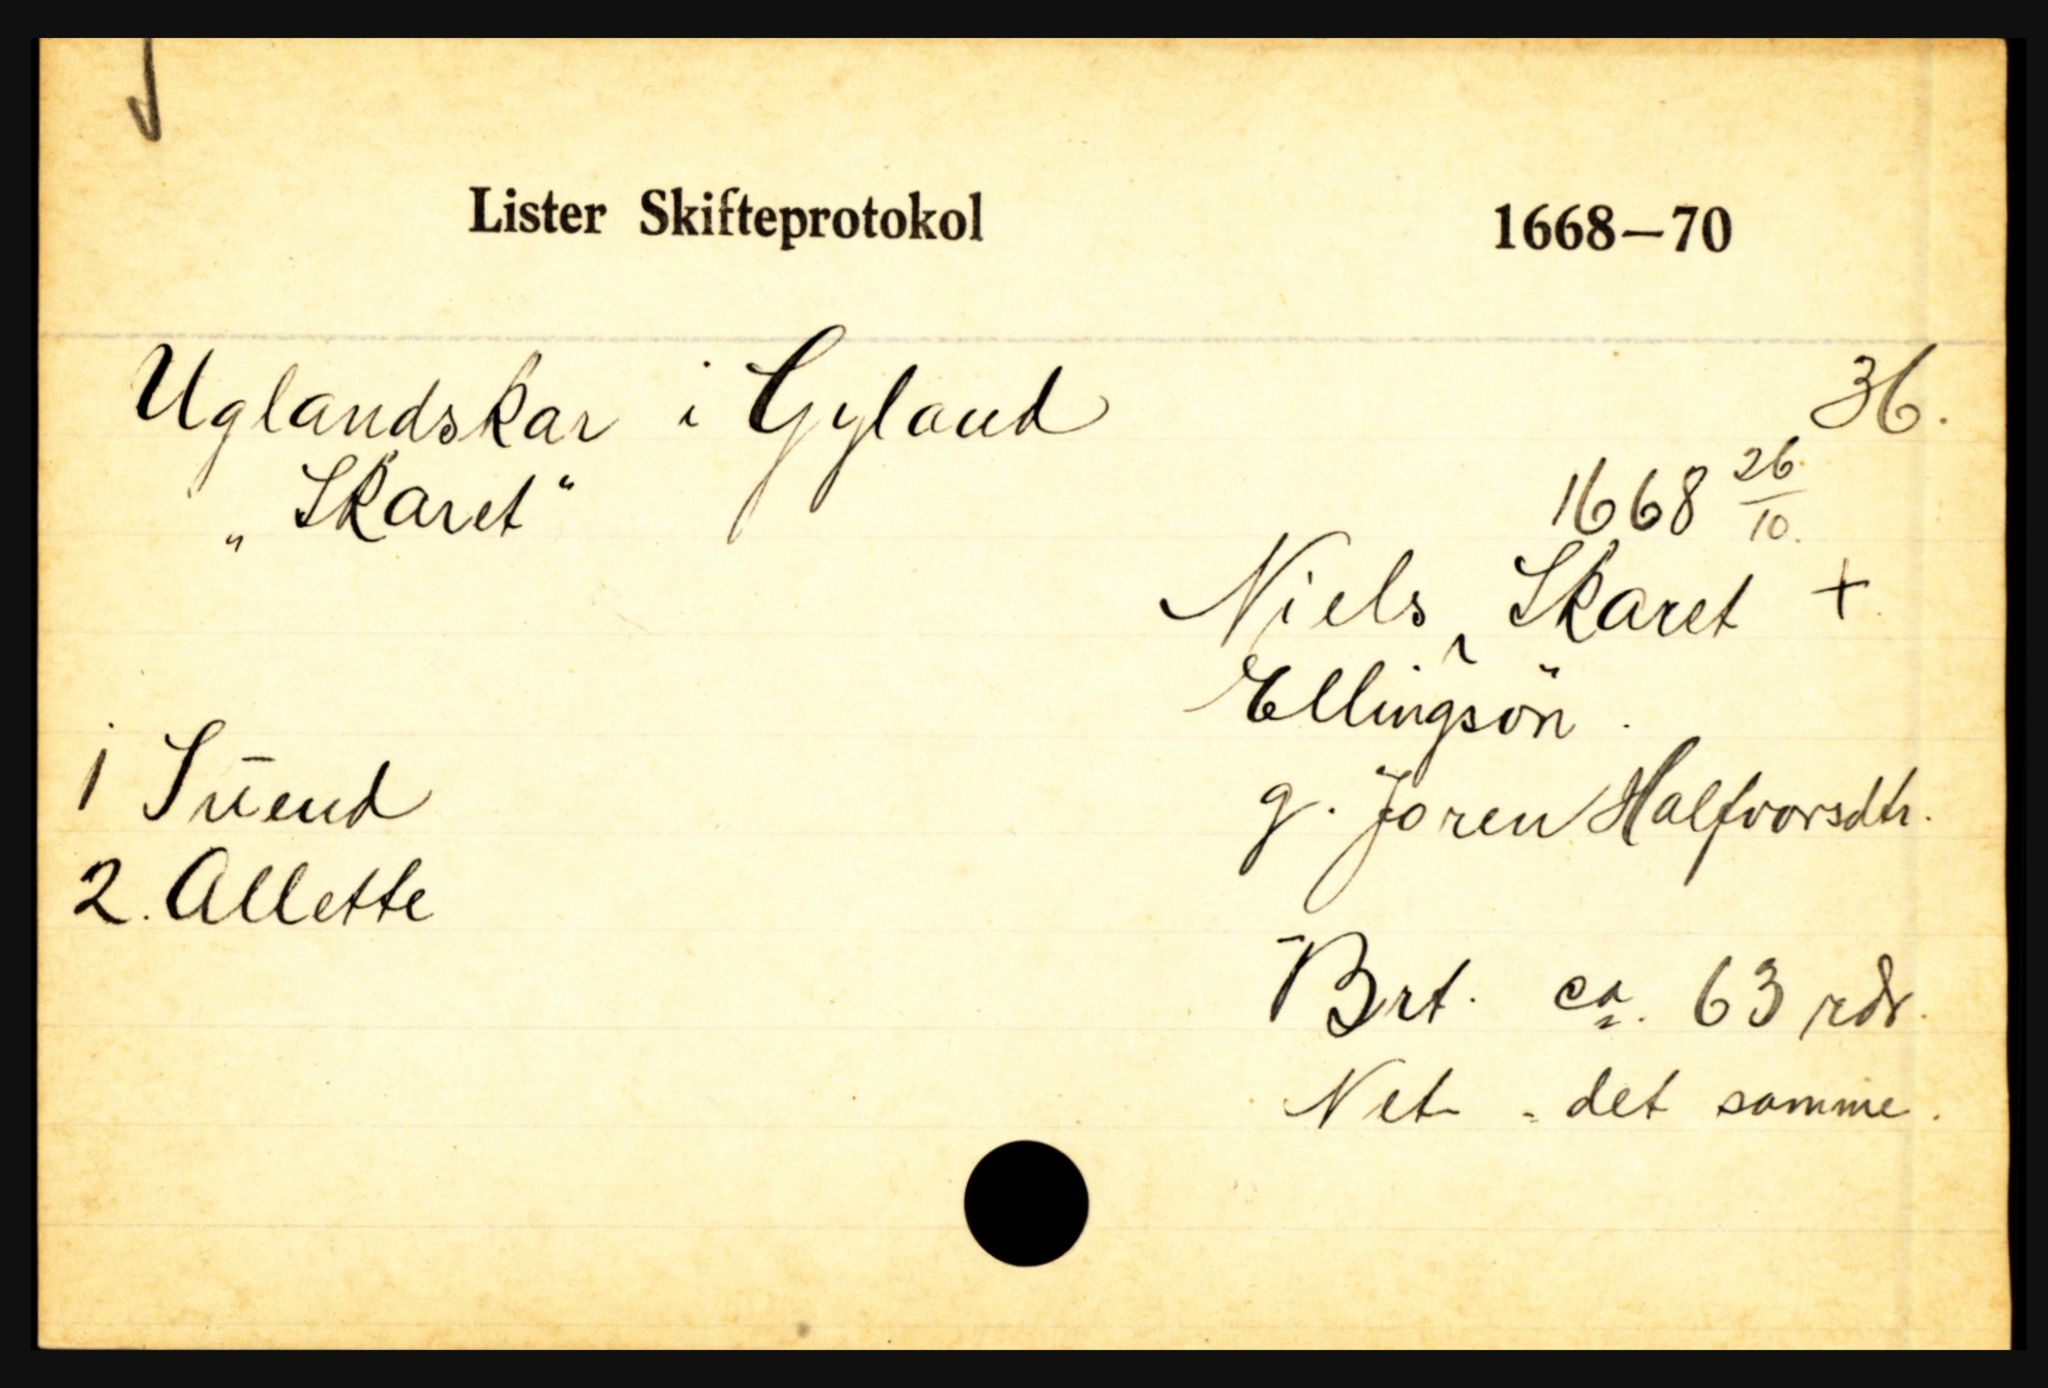 Lister Skifteprotokol 1668—70
Uglandskar i Gyland 36.
„Skaret“
1668 26/10.
Niels Skaret +
Ellingsön.
1 Sŭend
g. Joren Halfvorsdtr.
2. Allette
Brt. ca. 63 rdr.
Net - det samme.